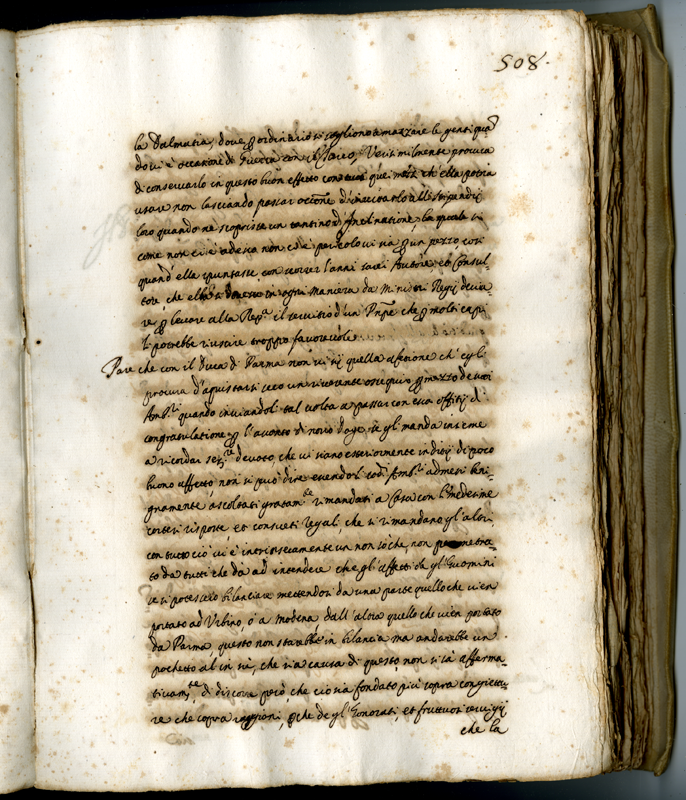 508.
la Dalmatia, dove p ordinario si sogliono amazzare le genti quã
do vi è occasione di Guerra con il Turco, Verisimilmente procura
di conservarlo in questo buon effetto con tutti quei mezi che ella potria
usare non lasciando passar occõne d'
loro quando ne scoprisse un tantino d'Inclinatione, la quale si
come non vi è adesso non vi è pericolo vi sia p un pezzo, così
quand'ella spuntasse con correr l'anni sarà Autore, et Consul-
tore, che in ogni maniera da Ministri Regij
re, p levare alla Rep.ca il servitio d'un Pñpe che p molti capi
li potrebbe riuscire troppo favorevole.
Pare che con il Duca di Parma non vi sij quella afetione ch'egli
procura d'aquistarsi con un riverente ossequio p mezzo de suoi
Amb.ri quando inviandoli tal volta a passar con essa offitij di
congratulatione p l'assonto di novo Doge, se gli manda insieme
a ricordar ser.re devoto, che vi siano esteriormente indizij di poco
buono affetto, non si può dire essendo li Amb.ri admessi beni-
gnamente ascoltati gratam.te rimandati a Casa con l'medesime
cortesi risposte, et consueti regali, che si rimandano gl'altri,
con tutto ciò vi è intrinsecamente un non sò che, non penetra-
to da tutti che dà ad intendere che gli affetti de gl'Huomini
se si potessero bilanciare mettendosi da una parte quello che vien
portato ad Urbino, ò a Modena, dall'altra quello che vien portato
da Parma questo non starebbe in bilancia ma andarebbe un
pochetto al in sù, che sia causa di questo, non si sà afferma-
tivam.te, di discorre però, che ciò sia fondato più sopra congiettu-
re che sopra raggioni, pche de gl'honorati, et fruttuosi servigij
che la